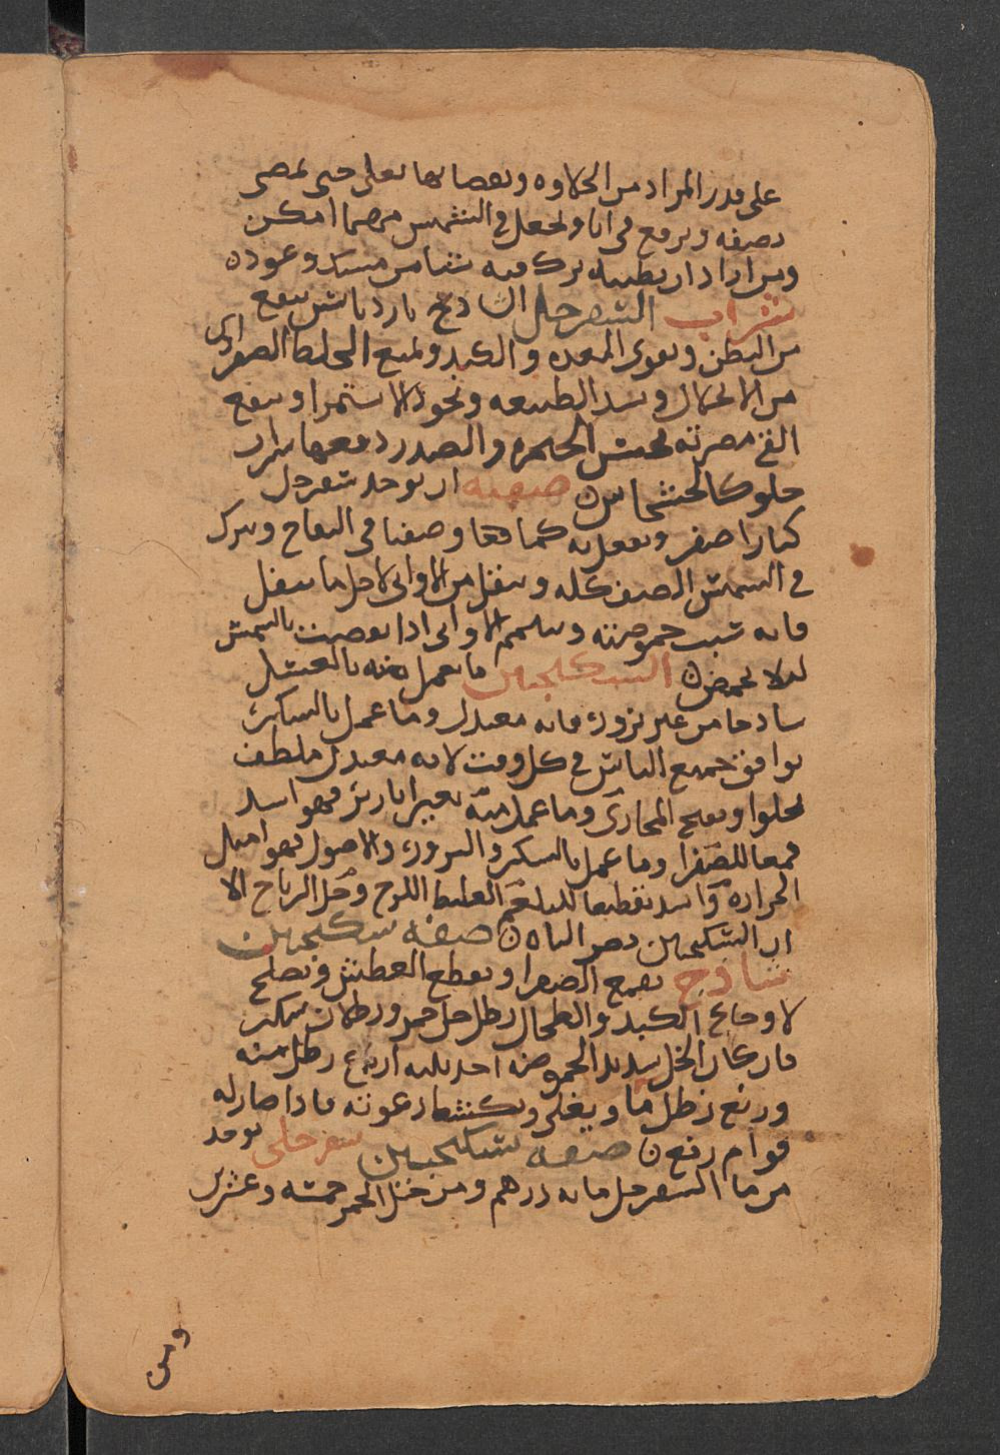 على قدر المراد من الحلاوه ونقصانها يغلى حتى يمضي
نصفه ويرفع في انا ويجعل في الشمس مهما امكن
ومن اراد ان يطيبه ترك فيه شيا من مسك وعود ن
شراب السفرجل الساذج بارد يابس ينفع
من البطن ويقوي المعده والكبد ويمنع الخلط الصفراوي
من الانحلال ويشد الطبيعه ويجود الاستمرا وينفع
القئ مضرته يخشن الحنجره والصدر دفعها بشراب
حلو كالخشخاش ن صفته ان يوخذ سفرجل
كبارا صفر ويعمل به كما قدما وصفنا في التفاح ويترك
في الشمس الصيف كله وينقل من الاواني لاجل ما يثفل
فانه سبب حموضته ويتمم الاواني اذا نقصت بالشمش
ليلا يحمض ن السكنجبين ما يعمل منه بالعسل
ساذجا من غير بزور فانه معتدل وما عمل بالسكر
يوافق جميع الناس في كل وقت لانه معتدل ملطف
يجلوا ويفتح المجاري وما عمل منه بغير ابازير فهو اشد
قمعا للصفرا وما عمل بالسكر والبزور والاصول فهو اميل
الحراره واشد تقطيعا للبلغم الغليظ اللزج وحل الرياح الا
ان السكنجبين يضر الباه ن صفة سكنجبين
ساذج يقمع الصفرا ويقطع العطش ويصلح
لاوجاع الكبد والطحال رطل خل خمر ورطلان سكر
فان كان الخل شديد الحموضه اخذ ثلثه ارباع رطل منه
وربع رطل ما ويغلى ويكشط رغوته فاذا صار له
قوام رفع ن صفه سكنجبين سفرجلي يوخذ
من ما السفرجل مايه درهم ومن خل الخمر خمسه وعشرين
ومن